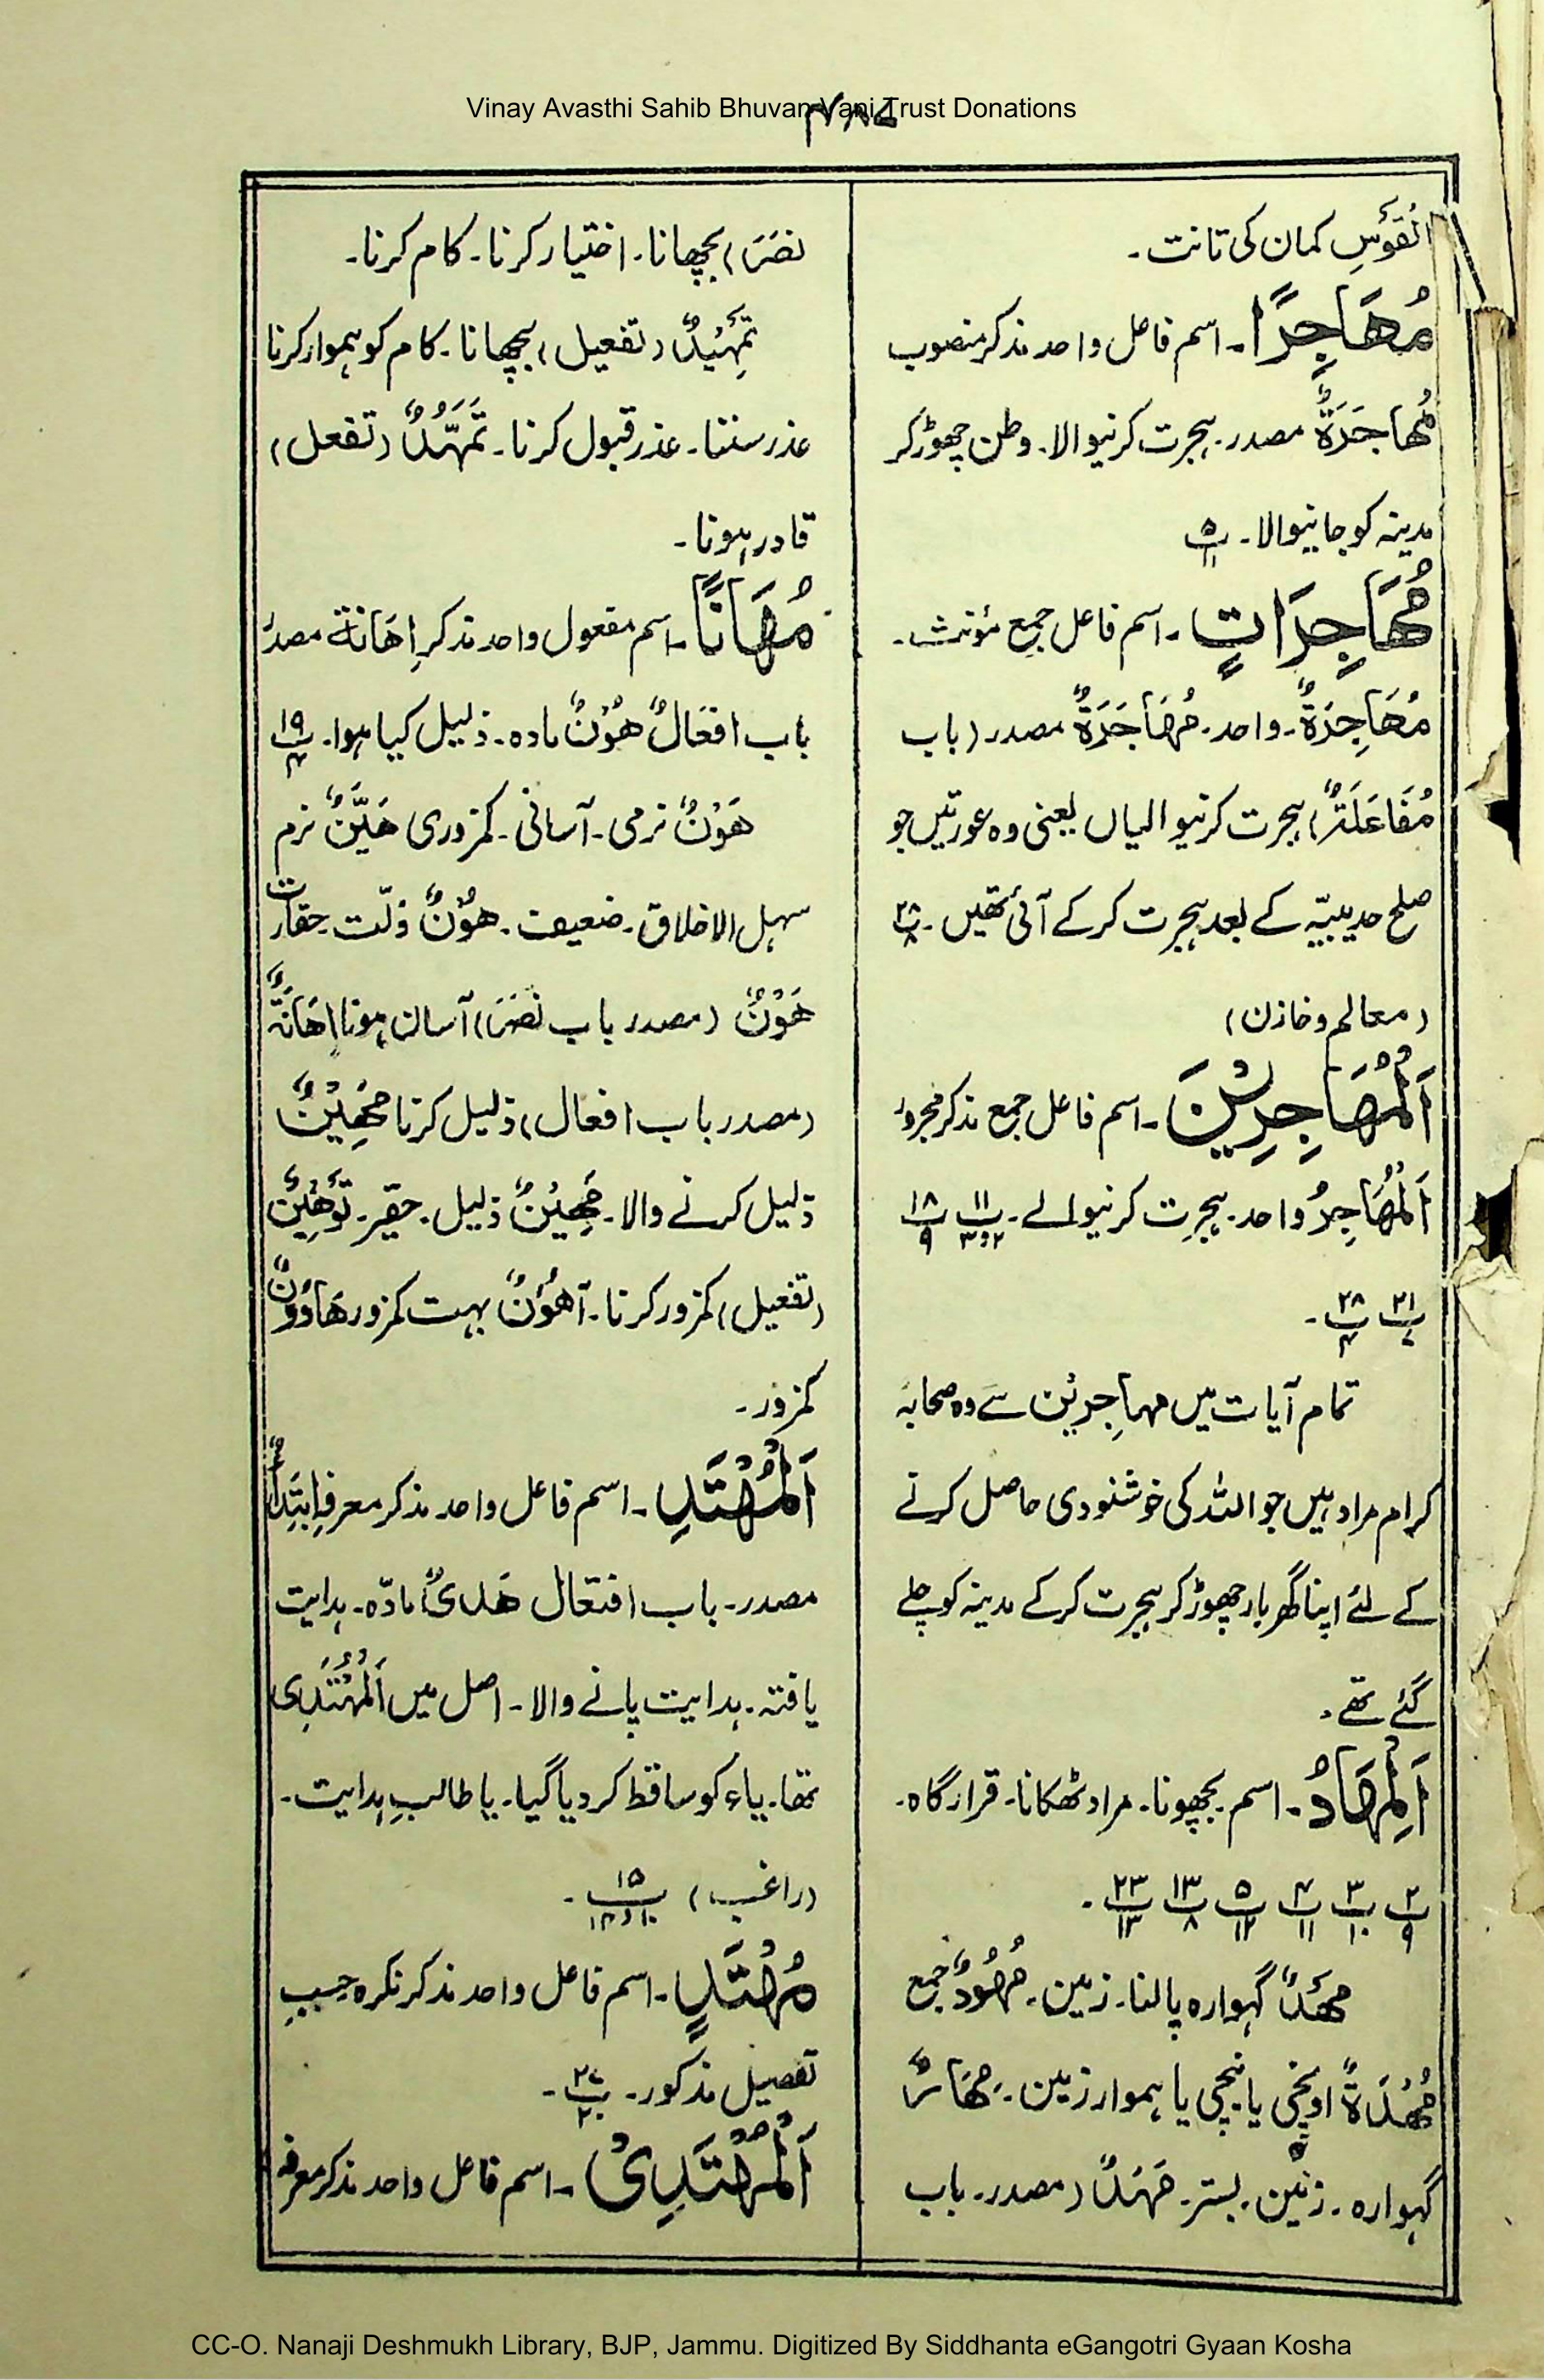 Vinay Avasthi Sahib Bhuvan Vani Trust Donations
الْقَوْسِ کمان کی تانت۔
مُهَاجِرًا۔ اسم فاعل واحد مذکر منصوب
مُهَاجَرَةٌ مصدر۔ ہجرت کرنیوالا۔ وطن چھوڑ کر
مدینہ کو جانیوالا۔ پ ۵ / ۱۱
مُهَاجِرَاتٍ۔ اسم فاعل جمع مؤنث۔
مُهَاجِرَةٌ۔ واحد۔ مُهَاجَرَةٌ مصدر (باب
مُفَاعَلَةٌ) ہجرت کرنیوالیاں یعنی وہ عورتیں جو
صلح حدیبیّہ کے بعد ہجرت کرکے آئی تھیں۔ پ ۲۸ / ۸
(معالم و خازن)
اَلْمُهَاجِرِيْنَ۔ اسم فاعل جمع مذکر مجرور
اَلْمُهَاجِرُ واحد۔ ہجرت کرنیوالے۔ پ ۱۱ / ۲ و ۳ پ ۱۸ / ۹
پ ۲۱ / ۷ پ ۲۸ / ۴۔
تمام آیات میں مہاجرین سے وہ صحابہ
کرام مراد ہیں جو اللہ کی خوشنودی حاصل کرنے
کے لئے اپنا گھر بار چھوڑ کر ہجرت کرکے مدینہ کو چلے
گئے تھے۔
اَلْمِهَادُ۔ اسم۔ بچھونا۔ مراد ٹھکانا۔ قرارگاہ۔
پ ۲ / ۹ پ ۳ / ۱۰ پ ۴ / ۱۱ پ ۵ / ۱۲ پ ۱۳ / ۸ پ ۲۳ / ۱۳۔
مَهْدٌ گہوارہ پالنا۔ زمین۔ مُهُوْدٌ جمع
مُهْدَةٌ اونچی یا نیچی یا ہموار زمین۔ مِهَادٌ
گہوارہ۔ زمین۔ بستر۔ مَهْدٌ (مصدر۔ باب
نَصَرَ) بچھانا۔ اختیار کرنا۔ کام کرنا۔
تَمْهِيْدٌ (تفعیل) بچھانا۔ کام کو ہموار کرنا
عذر سننا۔ عذر قبول کرنا۔ تَمَهُّدٌ (تفعل)
قادر ہونا۔
مُهَانًا۔ اسم مفعول واحد مذکر اِهَانَة مصدر
باب افعَالٌ هُوْنٌ مادہ۔ ذلیل کیا ہوا۔ پ ۱۹ / ۴
هَوْنٌ نرمی۔ آسانی۔ کمزوری هَيِّنٌ نرم
سہل الاخلاق۔ ضعیف۔ هُوْنٌ ذلّت۔ حقارت
هَوْنٌ (مصدر باب نَصَرَ) آسان ہونا اِهَانَةٌ
(مصدر باب افعال) ذلیل کرنا مُهِيْنٌ
ذلیل کرنے والا۔ مَهِيْنٌ ذلیل۔ حقیر۔ تَوْهِيْنٌ
(تفعیل) کمزور کرنا۔ اَهْوَنُ بہت کمزور هَاوُوْنٌ
کمزور۔
اَلْمُهْتَدِ۔ اسم فاعل واحد مذکر معرفہ اِهْتِدَاءٌ
مصدر۔ باب افتعال هَدْیٌ مادّہ۔ ہدایت
یافتہ۔ ہدایت پانے والا۔ اصل میں اَلْمُهْتَدِی
تھا۔ یاء کو ساقط کر دیا گیا۔ یا طالبِ ہدایت۔
(راغب) پ ۱۵
مُهْتَدٍ۔ اسم فاعل واحد مذکر نکرہ حسبِ
تفصیل مذکور۔ پ ۲۷ / ۲۰۔
اَلْمُهْتَدِیْ۔ اسم فاعل واحد مذکر معرفہ
CC-O. Nanaji Deshmukh Library, BJP, Jammu. Digitized By Siddhanta eGangotri Gyaan Kosha